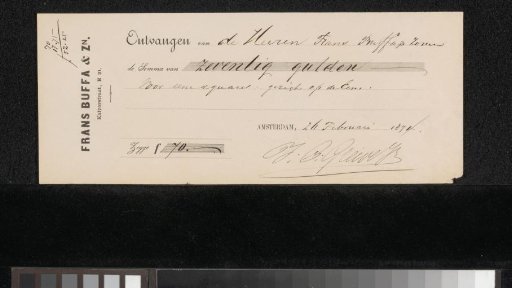 FRANS BUFFA & ZN.
Kalverstraat, K 39.
Ontvangen van de Heeren Frans Buffa & Zonen
de Somma van zeventig gulden
Voor een aquarel, gezicht op de
AMSTERDAM, 26 Februari 187
Zegge ƒ 70.—